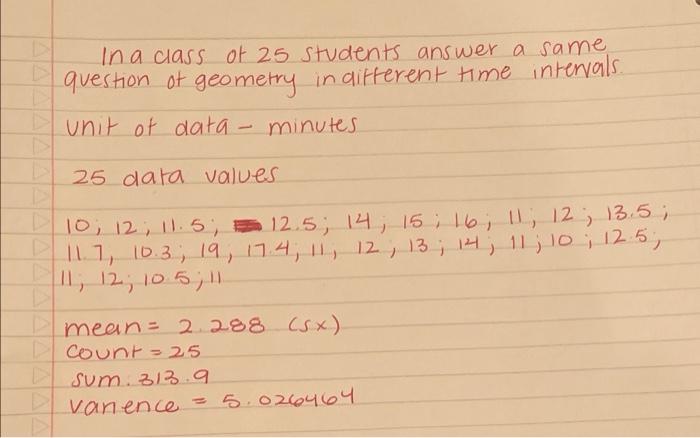 In a class of 25 students answer a same
question of geometry in different time intervals.
unit of data - minutes
25 data values
10; 12; 11.5; 12.5; 14; 15; 16; 11; 12; 13.5;
11.7, 10.3; 19; 17.4; 11; 12; 13; 14; 11; 10; 12.5;
11; 12; 10.5; 11
mean = 2.288 (sx)
count = 25
sum: 313.9
varience = 5.026464